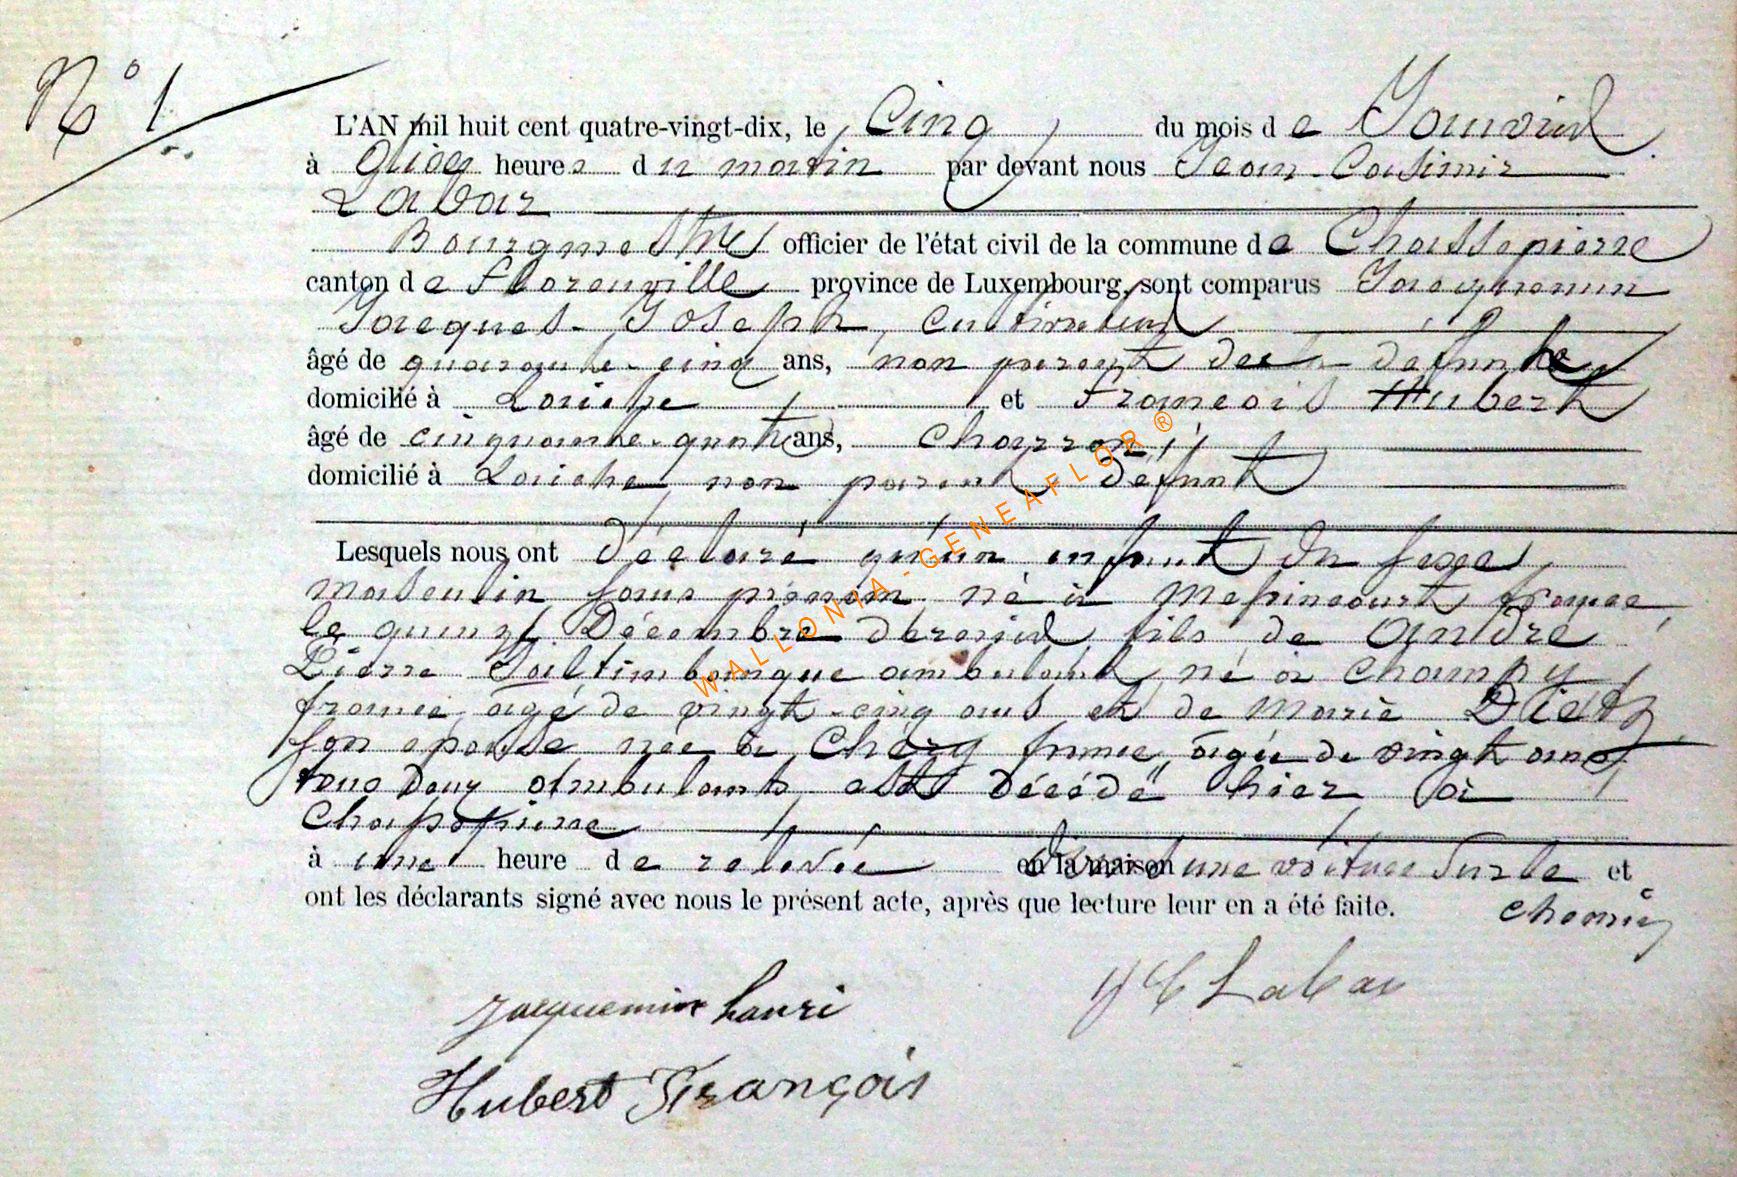 N° 1
L'AN mil huit cent quatre-vingt-dix, le Cinq du mois de Janvier
à heures du matin par devant nous Jean-Casimir
Labar
Bourgmestre officier de l'état civil de la commune de Chassepierre
canton de Florenville province de Luxembourg, sont comparus Jacquemin
Jacques-Joseph, cultivateur
âgé de quarante-cinq ans, non parent de defunte
domicilié à Laiche et François Hubert
âgé de cinquante-quatre ans, charron
domicilié à Laiche, non parent défunt
Lesquels nous ont déclaré qu'un enfant du sexe
masculin sans prénom, né à france
le quinze Décembre dernier fils de André
Pierre Saltimbanque ambulant né à Champy
france, agé de vingt-cinq ans et de Marie Dietz
son epouse née à Chéry france, agée de vingt ans
tous deux ambulants, est décédé hier à
Chassepierre
à une heure de relevée en la maison dans une voiture sur le et
ont les déclarants signé avec nous le présent acte, après que lecture leur en a été faite. chemin
JC Labar
Jacquemin henri
Hubert François
WALLONIA-GENEAFLOR®